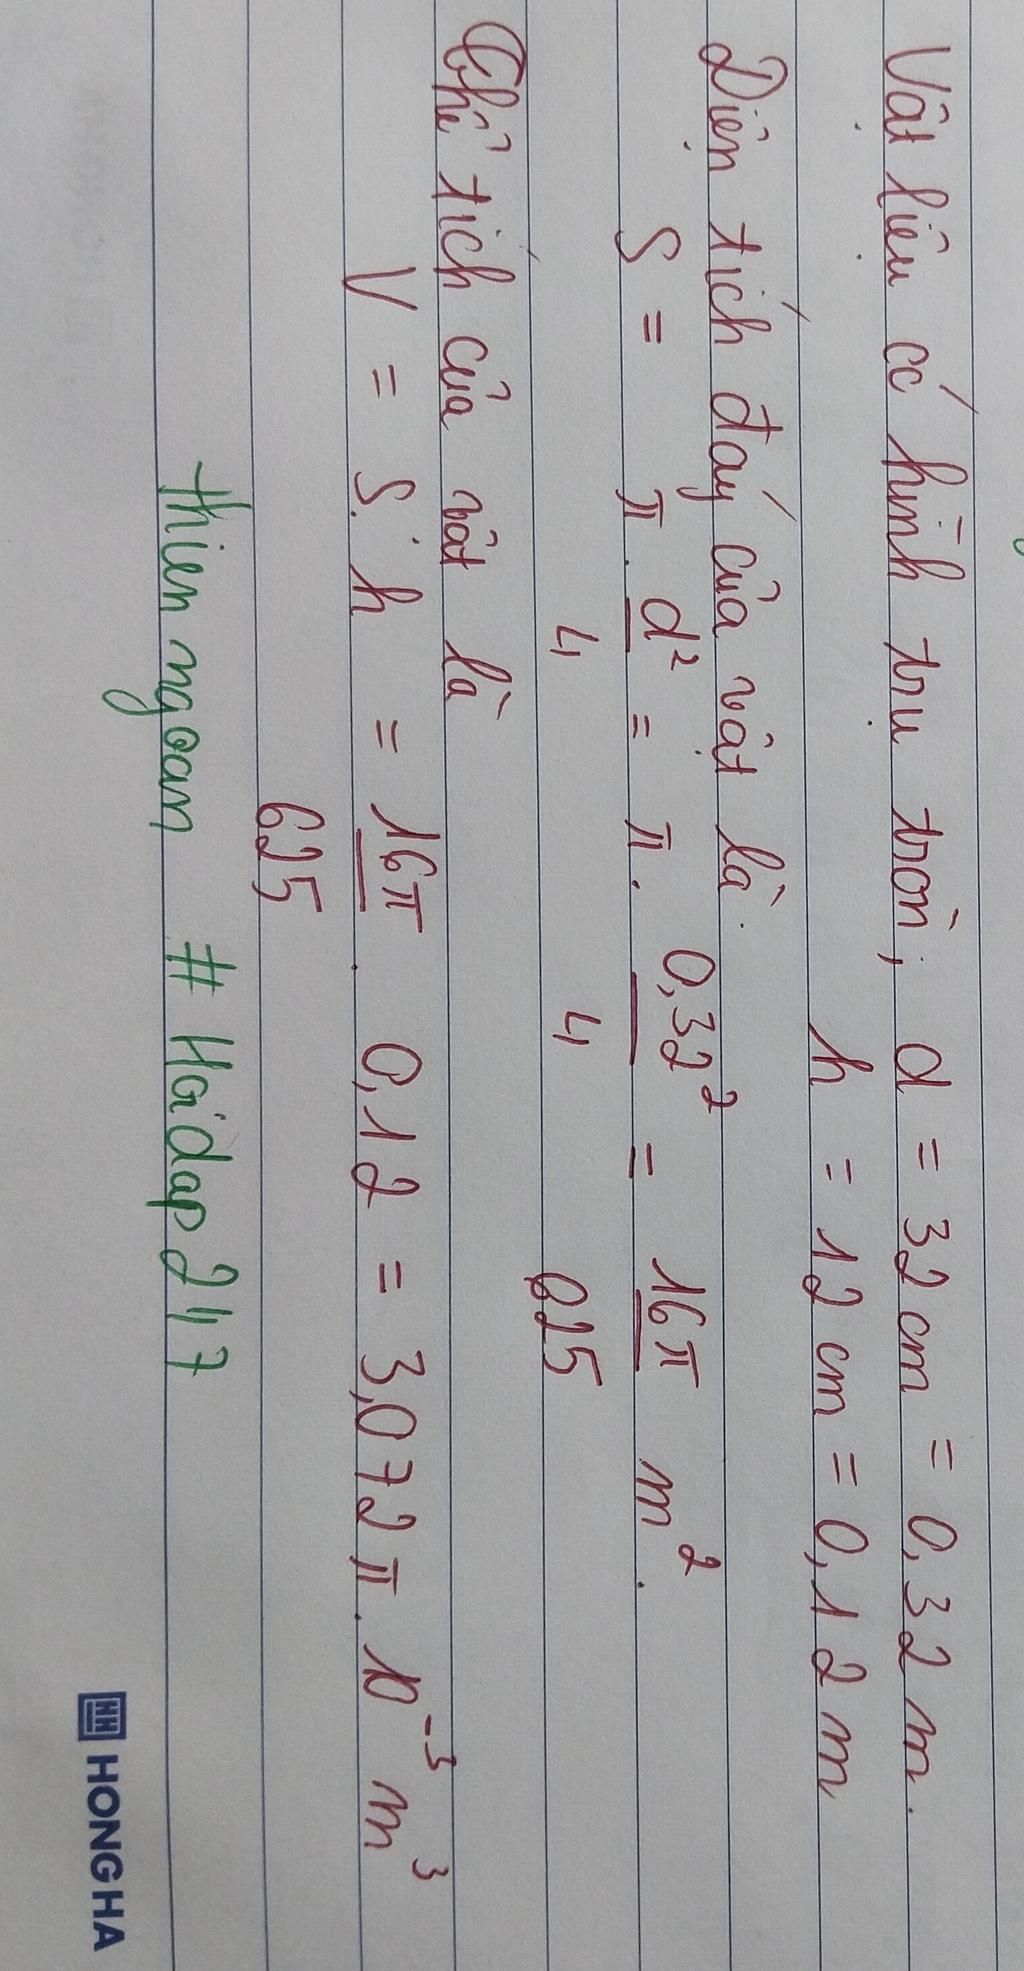 Vật liệu có hình trụ tròn, d = 32 cm = 0,32 m.
h = 12 cm = 0,12 m
Diện tích đáy của vật là.
S = π . d²/4 = π . 0,32²/4 = 16π/625 m².
Thể tích của vật là
V = S.h = 16π/625 . 0,12 = 3,072π.10⁻³ m³
thien ngoan # Hoidap247
HH HONG HA